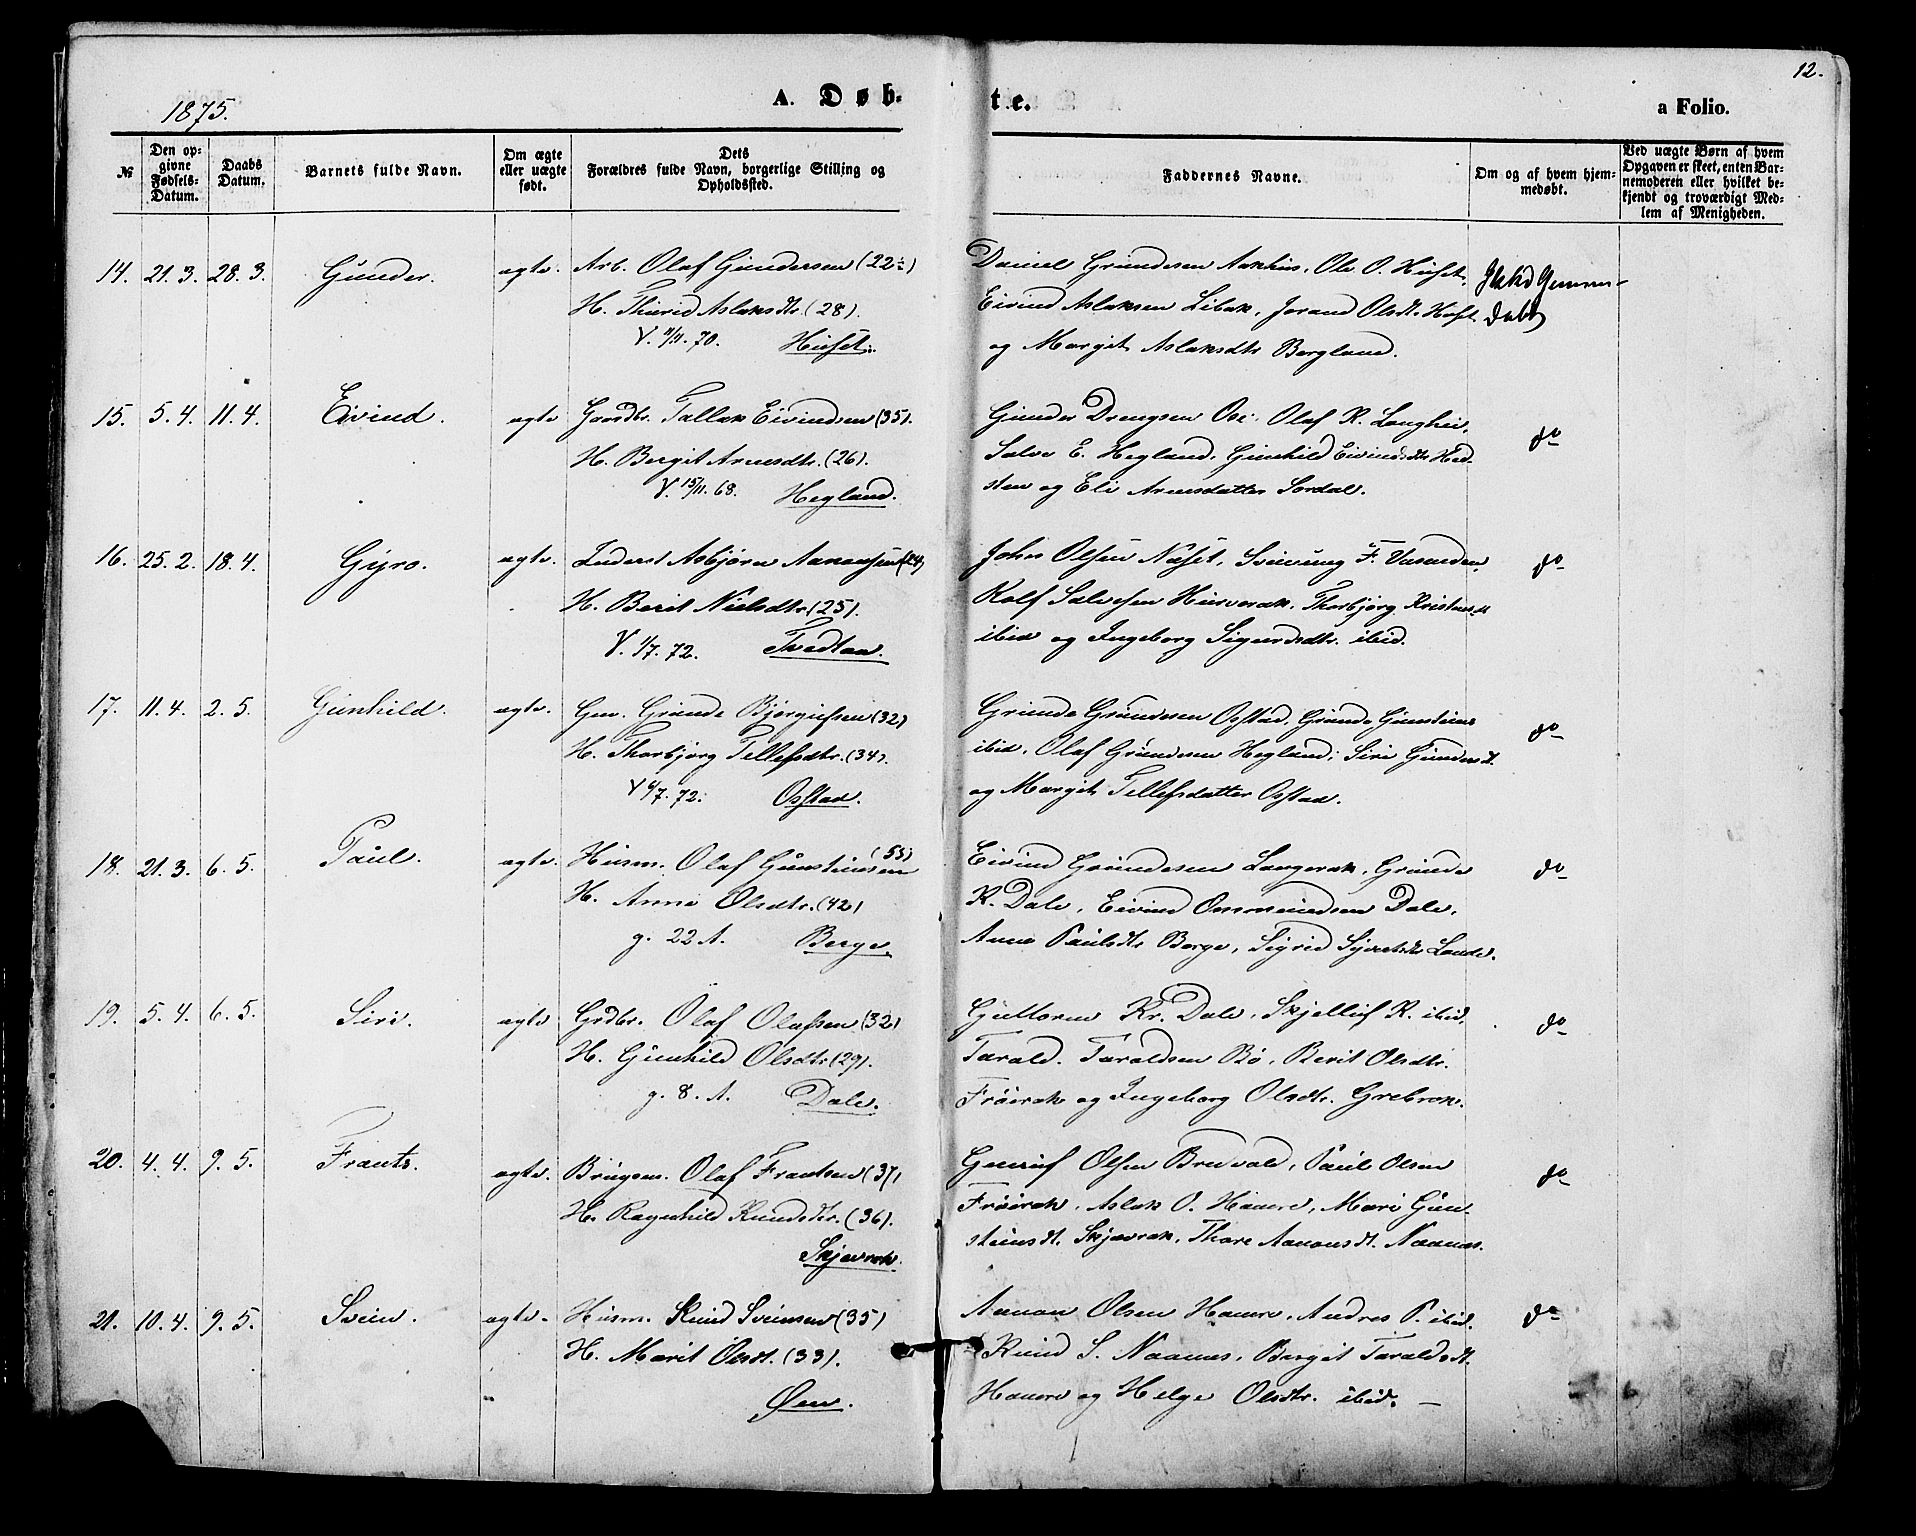 12.
1875.
A. Døb-
te.
a Folio.
№
Den op-
givne
Fødsels-
Datum.
Daabs
Datum.
Barnets fulde Navn.
Om ægte
eller uægte
født.
Dets
Forældres fulde Navn, borgerlige Stilling og
Opholdssted.
Faddernes Navne.
Om og af hvem hjem-
medøbt.
Ved uægte Børn af hvem
Opgaven er skeet, enten Bar-
nemoderen eller hvilket be-
kjendt og troværdigt Med-
lem af Menigheden.
14. 21.3. 28.3. Gunder. ægte. Arb. Olaf Gundersen (22
H. Thurid Aslaksdtr. (28).
V. 11/11. 70. Huset.
Daniel Grundesen Aakhus, Ole O. Huset,
Eivind Aslaksen Libak, Jorand Olsdt. Huset
og Margit Aslaksdtr Bergland.
Ikke
15. 5.4. 11.4. Eivind. ægte Gaardbr. Tallak Eivindsen (35).
H. Bergit Arnesdtr. (26).
V. 15/11. 68. Hegland.
Gunder Drengsen Ose. Olaf K. Langhei,
Salve E. Hegland, Gunhild Eivindsdtr Hed-
sten og Eli Arnesdatter Sordal.
do
16. 25.2. 18.4. Gyro. ægte. Inderst Asbjørn Aanonsen (24)
H. Berit Nielsdtr (25).
V. 1/7. 72. Tvedtan.
John Olsen Næset, Sveinung F. Vasenden,
Rolf Salvesen Husverak, Thorbjørg Kristensd
ibid og Ingeborg Sigurdsdtr. ibid.
do
17. 11.4. 2.5. Gunhild. ægte. Gm. Grunde Bjorgufsen (32)
H. Thorbjørg Tellefsdtr. (34).
V 6/7. 72. Osstad.
Grunde Grundesen Osstad, Grunde Gunsteins
ibid, Olaf Grundesen Hegland, Siri Gundersd.
og Margit Tellefsdatter Osstad.
do
18. 21.3. 6.5. Paul. ægte. Husm. Olaf Gunsteinsen (55)
H. Anne Olsdtr. (42)
g. 22 A. Berge.
Eivind Grundesen Langerak, Grunde
K. Dale, Eivind Ommundsen Dale,
Anne Paulsdtr Berge, Sigrid Syvertsdtr Lande.
do
19. 5.4. 6.5. Siri. ægte Grdbr. Olaf Olafsen (32)
H. Gunhild Olsdtr (29).
g. 8. A. Dale.
Guttorm Kr. Dale, Skjelluf K. ibid,
Tarald Taraldsen Bø, Berit Olsdtr.
Frøirak og Ingeborg Olsdtr. Grebrok.
do
20. 4.4. 9.5. Frants. ægte. Brugsm. Olaf Frantsen (37)
H. Ragnhild Knudsdtr. (36).
Skjævrak.
Gunuf Olsen Brudvald, Paul Olsen
Frøirak, Aslak O. Haure, Mari Gun-
steinsdt. Skjævrak, Thore Aanonsdt. Naanes.
do
21. 10.4. 9.5. Svein. ægte. Husm. Knud Sveinsen (35)
H. Marit Olsdt. (33).
Øen.
Aanon Olsen Haure, Andres P. ibid.
Knud S. Naanes, Bergit Taraldsdt.
Haure og Helge Olsdtr. ibid. —
do